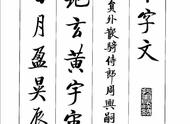 千字文
員外散騎侍郎周興嗣
地玄黃宇宙
月盈昃辰